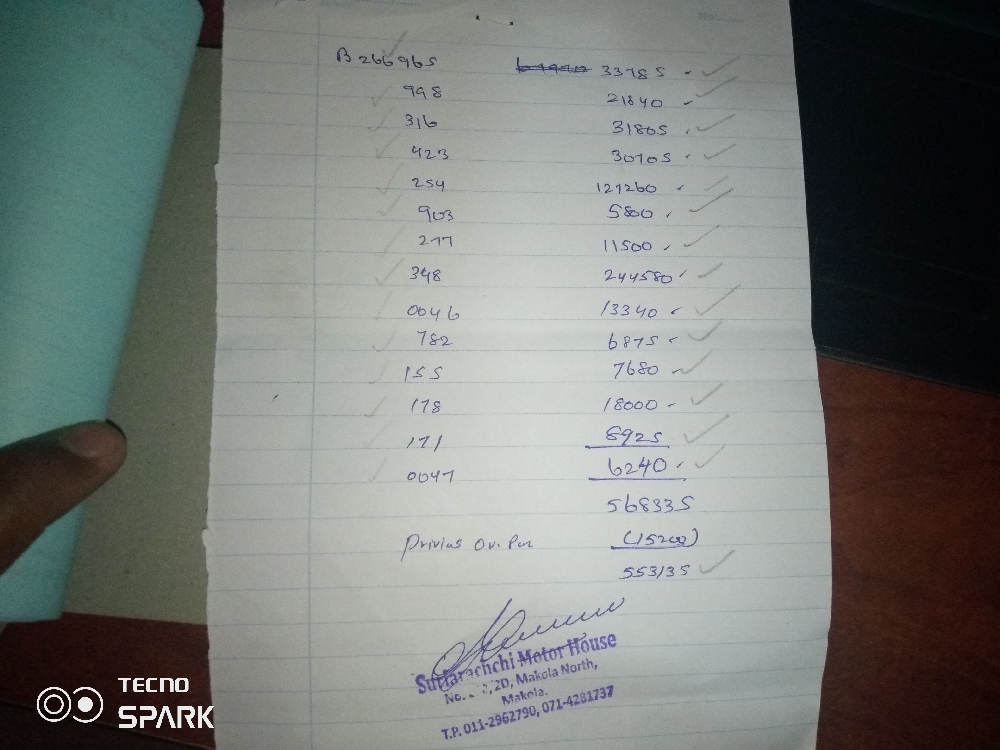 B266965 33785
998 21840
316 31805
423 30705
254 127260
903 5800
277 11500
348 244580
0046 13340
782 6875
155 7680
178 18000
171 8925
0047 6240
568335
Privius Ov. Par (15200)
553135
Suttarachchi Motor House
No. 2D, Makola North,
Makola.
T.P. 011-2962790, 071-4281737
TECNO
SPARK